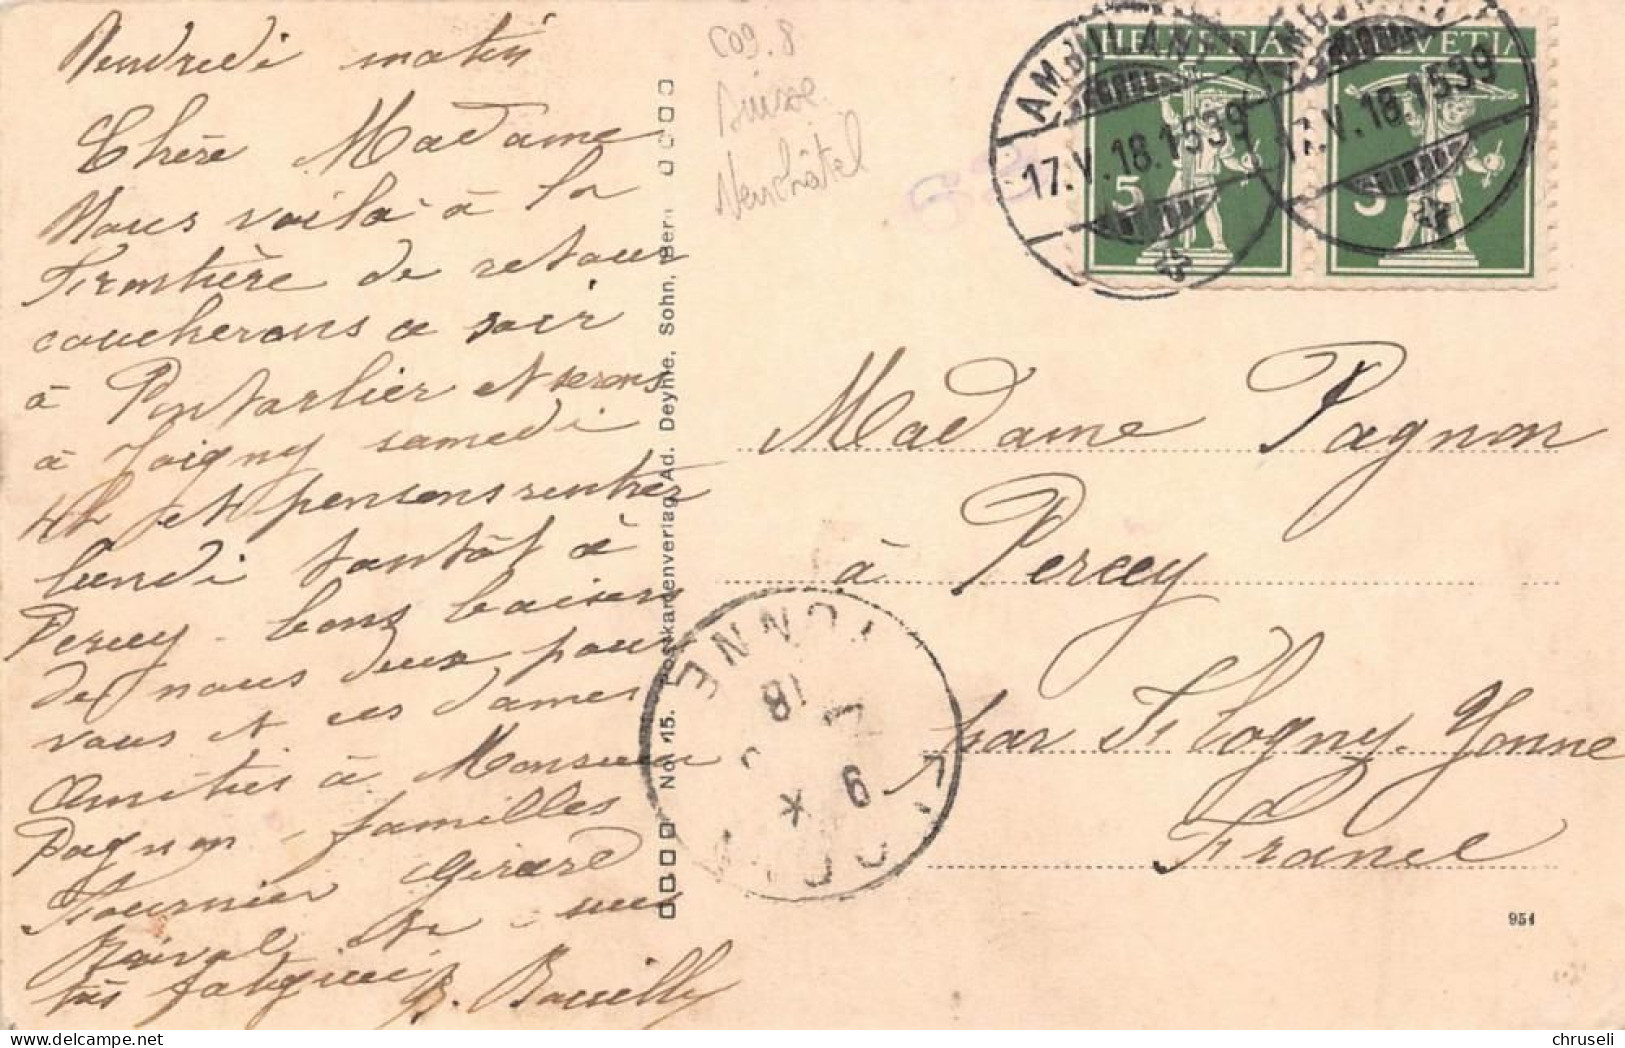 Vendredi matin
Chère Madame
Nous voilà à la
Frontière de retour
coucherons ce soir
à Pontarlier et serons
à Joigny samedi
4h et pensons rentrer
lundi tantôt à
Percey - bons baisers
de nous deux pour
vous et ces dames
Amitiés à Monsieur
Pagnon - familles
Fournier Girard
suis
très fatigué B.
No. 15. Postkartenverlag Ad. Deyhle, Sohn, Bern
C09.8
Suisse
Neuchâtel
HELVETIA HELVETIA
5 5
AMBULANT
17.V.18.1539
17.V.18.1539
Madame Pagnon
à Percey
par St Flogny. Yonne
France
YONNE
18
9 *
954
chruseli